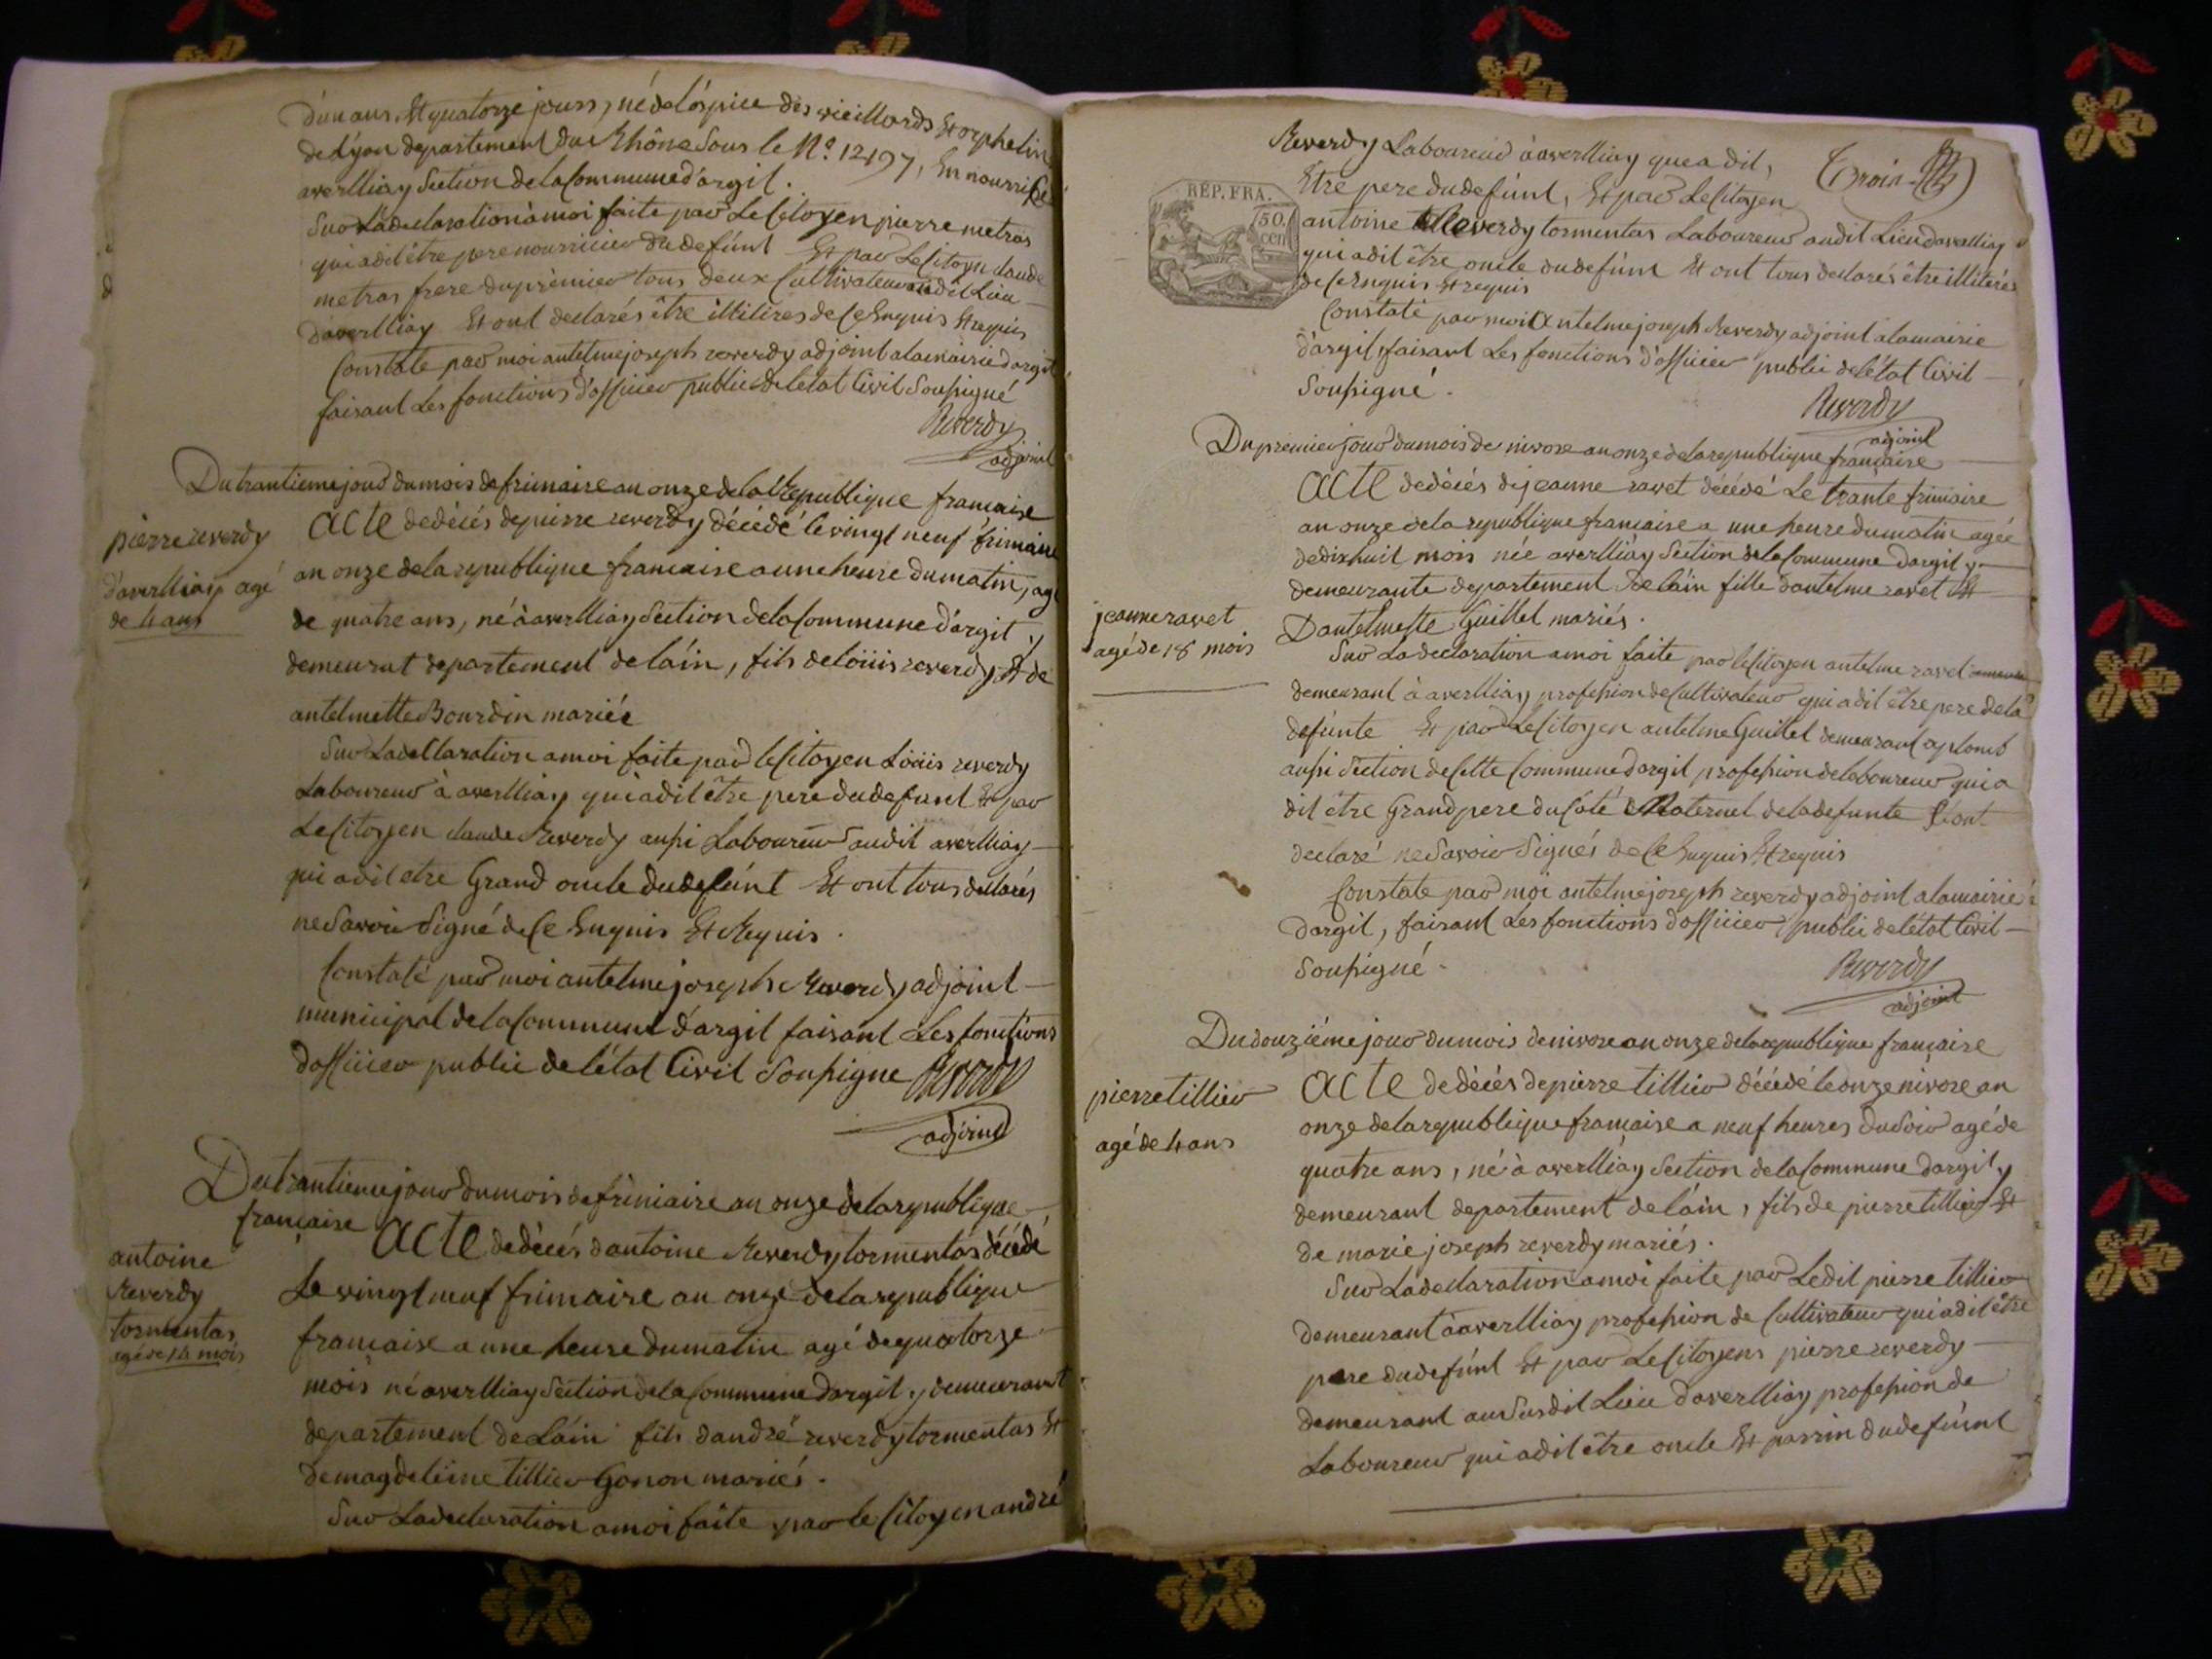 d'un ans Et quatorze jours, né de lóspice des vieillards Et orphelins
de Lyon departement du Rhône Sous le N.° 12497, En nourrice
averlliay Section de la Commune d'argil.
Sur la declaration à moi faite par Le Citoyen pierre metras
qui a dit être pere nourricier du defúnt Et par Le Citoyn claude
metras frere du prémier tous deux Cultivateur audit Lieu
daverlliay Et ont declarés être illitires de Ce Enquis Et requis
Constaté par moi antelme joseph reverdy adjoint ala mairie d'argil
faisant Les fonctions d'officier public de létat Civil Soussigné
Reverdy
adjoint
Du trantieme jour du mois de frimaire an onze de la république francaise
pierre reverdy
d'averlliay agé
de 4 ans
acte de décés de pierre reverdy décédé le vingt neuf frimaire
an onze de la republique francaise a une heure du matin, agé
de quatre ans, né à averlliay Section de la Commune d'argit y
demeurat departement de láin, fils de loüis reverdy Et de
antelmette Bourdin mariés
Sur La declaration a moi faite par le Citoyen Loüis reverdy
Laboureur à averlliay qui a dit être pere du defunt Et par
Le Citoyen claude Reverdy aussi Laboureur audit averlliay
qui a dit etre Grand oncle du defúnt Et ont tous declarés
ne Savoir Signé de Ce Enquis Et Requis.
Constaté par moi antelme joseph Reverdy adjoint
municipal de la Commune d'argil faisant Les fonctions
dofficier public de létat Civil Soussigne Reverdy
adjoint
Du trantieme jour du mois de frimaire an onze de la republique
française
antoine
Reverdy
tormentas
agé de 14 mois
acte de décés dantoine Reverdy tormentas décédé
Le vingt neuf frimaire an onze de la republique
francaise a une heure du matin agé de quatorze
mois né averlliay Section de la Commune dargil y demeurant
departement de Láin fils dandré reverdy tormentas Et
de magdeleine tillier Gonon mariés.
Sur La declaration a moi faite par le Citoyen andré
Reverdy Laboureur à averlliay que a dit,
Être pere du defúnt, Et par Le Citoyen
RÉP. FRA.
50.
cen
antoine Reverdy tormentas Laboureur audit Lieu daverlliay
qui a dit être oncle du defúnt Et ont tous declarés être illitirés
de Ce Enquis Et requis
Constaté par moi Antelme joseph Reverdy adjoint a la mairie
d'argil faisant Les fonctions d'officier public de létat Civil
Soussigné.
Reverdy
adjoint
Du premier jour du mois de nivose an onze de la republique française
jeanne ravet
agé de 18 mois
acte de décés de jeanne ravet décédé Le trante frimaire
an onze de la republique francaise a une heure du matin agée
de dix huit mois née averlliay Section de la Commune dargil y
demeurante departement de láin fille dantelme ravet Et
Dantelmette Guillet mariés.
Sur La declaration a moi faite par le Citoyen antelme ravet
demeurant à averlliay profession de Cultivateur qui a dit être pere de la
defunte Et par Le Citoyen antelme Guillet demeurant a plomb
aussi Section de Cette Commune dargil profession de laboureur qui a
dit être Grand pere du Coté Maternel de la defunte Et ont
declaré ne Savoir Signés de Ce Enquis Et requis
Constate par moi antelme joseph reverdy adjoint a la mairie
dargil, faisant Les fonctions d'officier public de létat Civil
Soussigné.
Reverdy
adjoint
Du douziéme jour du mois de nivose an onze de la republique française
pierre tillier
agé de 4 ans
acte de décés de pierre tillier décédé le onze nivose an
onze de la republique francaise a neuf heures du Soir agé de
quatre ans, né à averlliay Section de la Commune dargil y
demeurant departement de láin, fils de pierre tillier Et
de marie joseph reverdy mariés.
Sur La declaration a moi faite par Ledit pierre tillier
demeurant à averlliay profession de Cultivateur qui a dit être
pere du defúnt Et par Le Citoyens pierre reverdy
demeurant au Susdit Lieu daverlliay profession de
Laboureur qui a dit être oncle Et parrin du defúnt